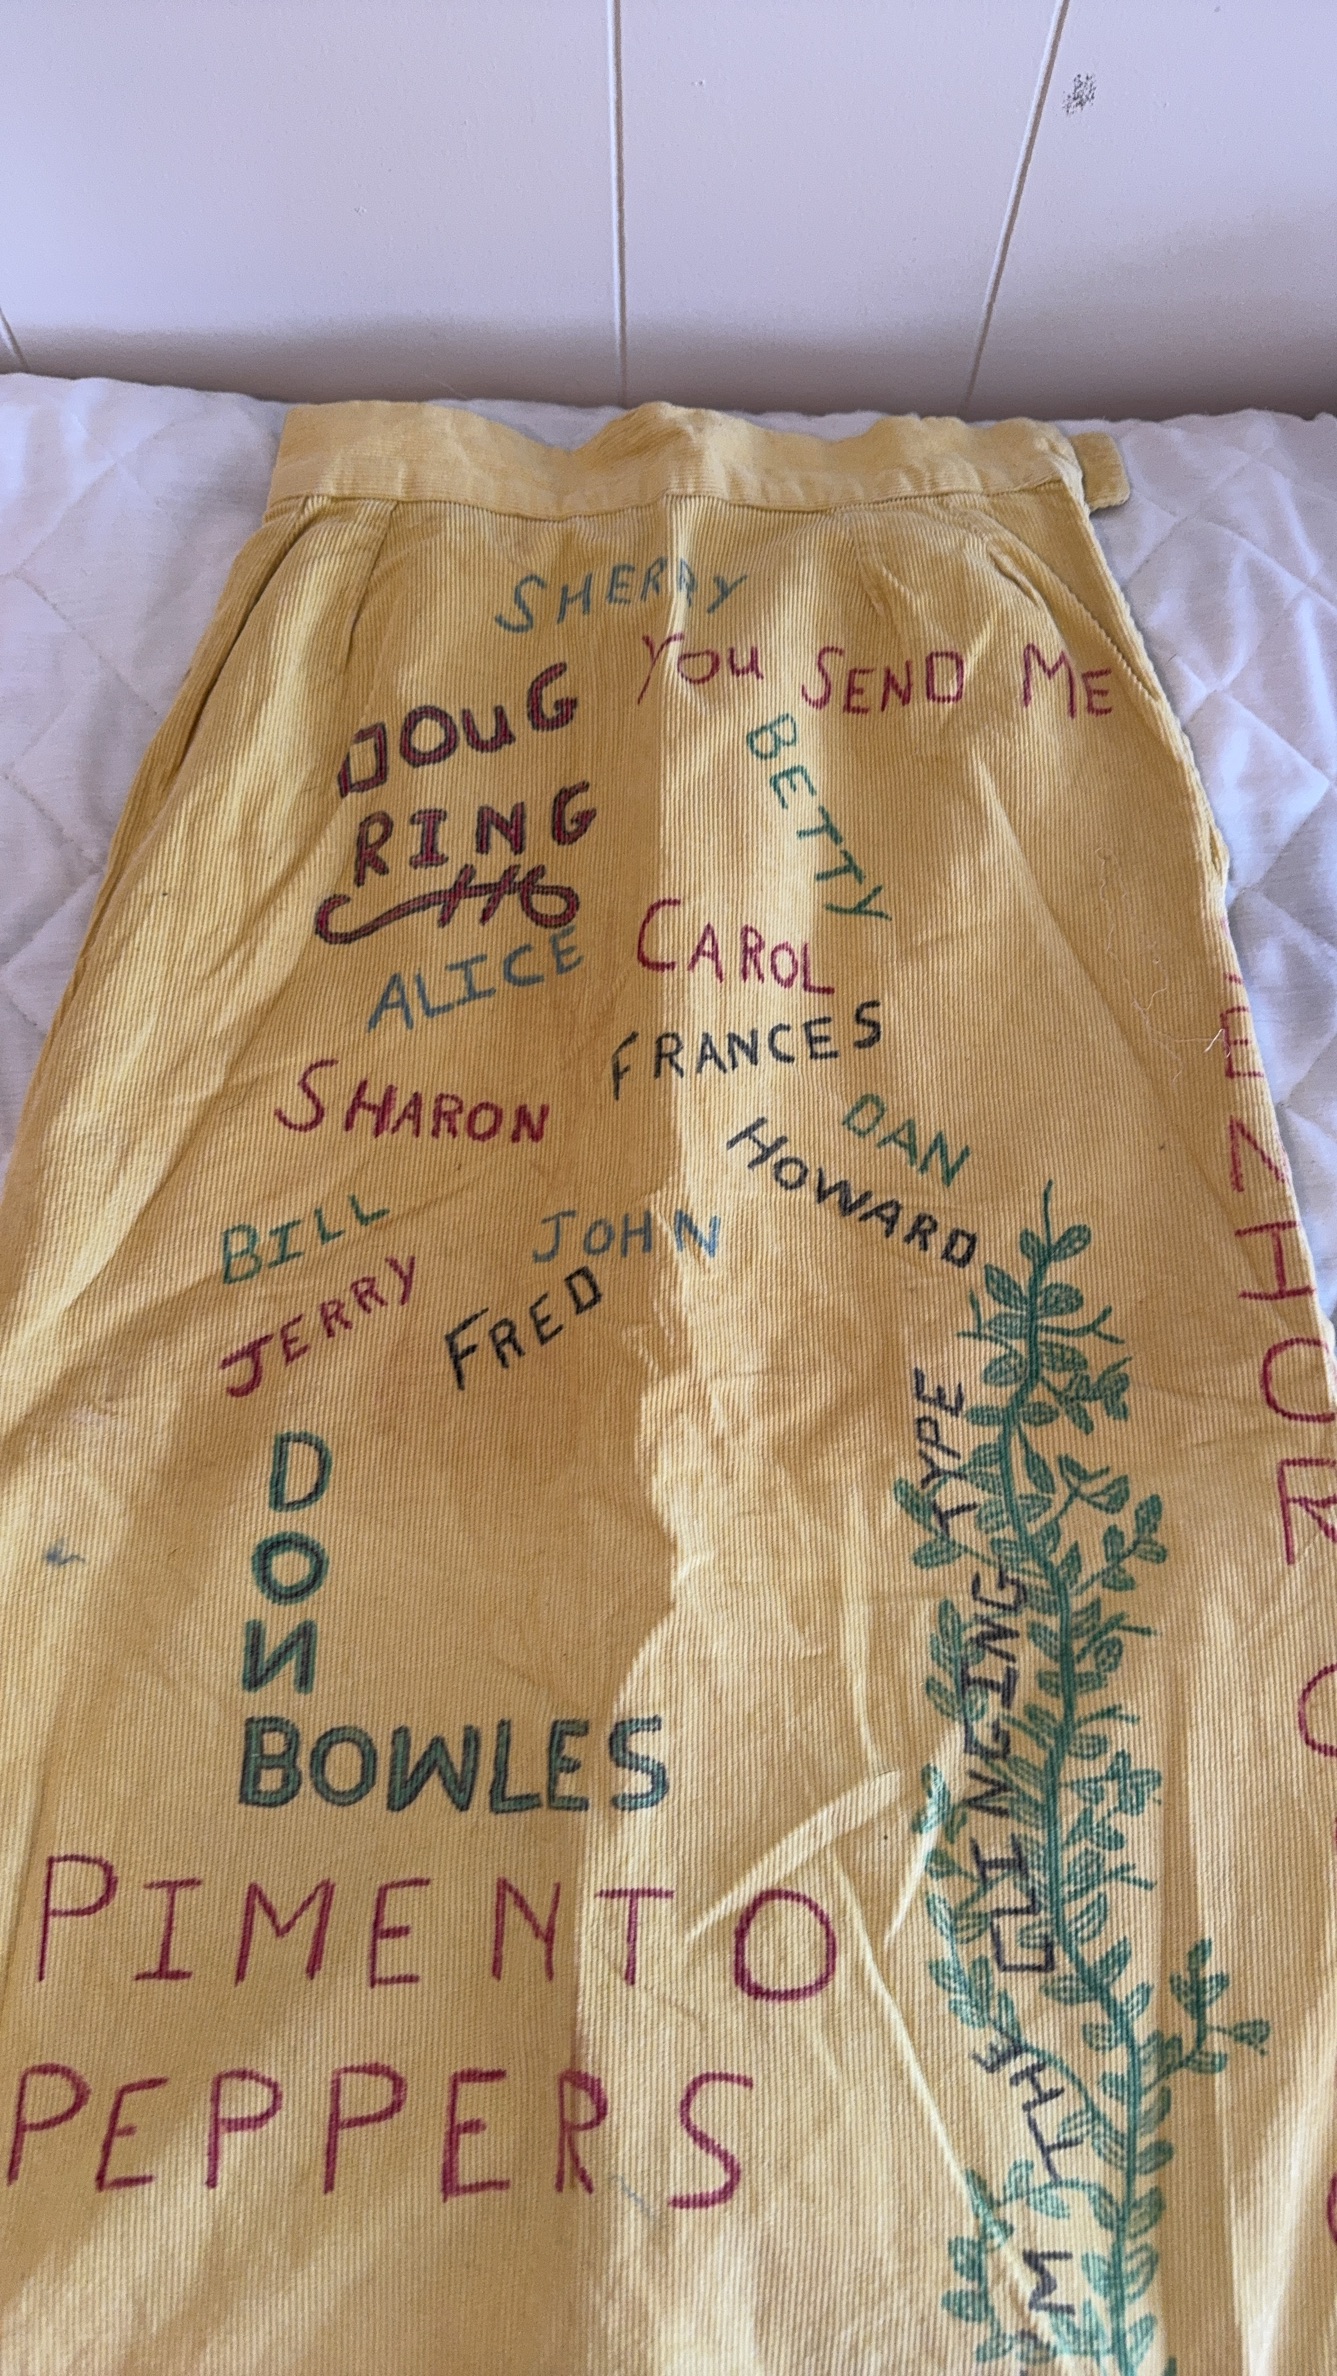 SHERRY
YOU SEND ME
DOUG
RING
BETTY
CAROL
ALICE
FRANCES
SHARON
DAN
HOWARD
BILL
JOHN
JERRY
FRED
DON
BOWLES
PIMENTO
PEPPERS
THE CLINGING TYPE
SENIOR